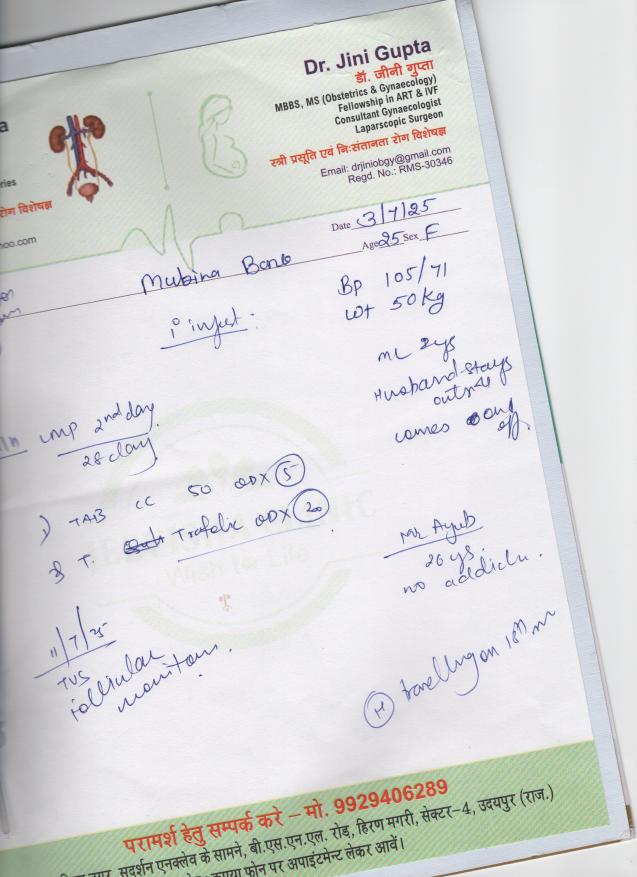 Dr. Jini Gupta
डॉ. जीनी गुप्ता
MBBS, MS (Obstetrics & Gynaecology)
Fellowship in ART & IVF
Consultant Gynaecologist
Laparscopic Surgeon
स्त्री प्रसूति एवं निःसंतानता रोग विशेषज्ञ
Email: drjiniobgy@gmail.com
Regd. No.: RMS-30346
ries
रोग विशेषज्ञ
oo.com
Date 3/7/25
Age 25 Sex F
Mubina Bano
Bp 105/71
wt 50 kg
1° infert:
ML 2ys
Husband stays
outside
comes on
LMP 2nd day.
28 day
1) TAB CC 50 OD X 5
2) T. Trafolic OD X 20
Mr Ayub
26 ys.
no addictn.
11/7/25
TVS
follicular
monitoring.
H travelling on
परामर्श हेतु सम्पर्क करे – मो. 9929406289
सुदर्शन एनक्लेव के सामने, बी.एस.एन.एल. रोड, हिरण मगरी, सेक्टर-4, उदयपुर (राज.)
कृपया फोन पर अपाइंटमेन्ट लेकर आवें।